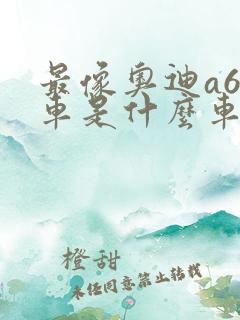 最像奥迪a6
车是什麼车
橙甜
未经同意禁止转载